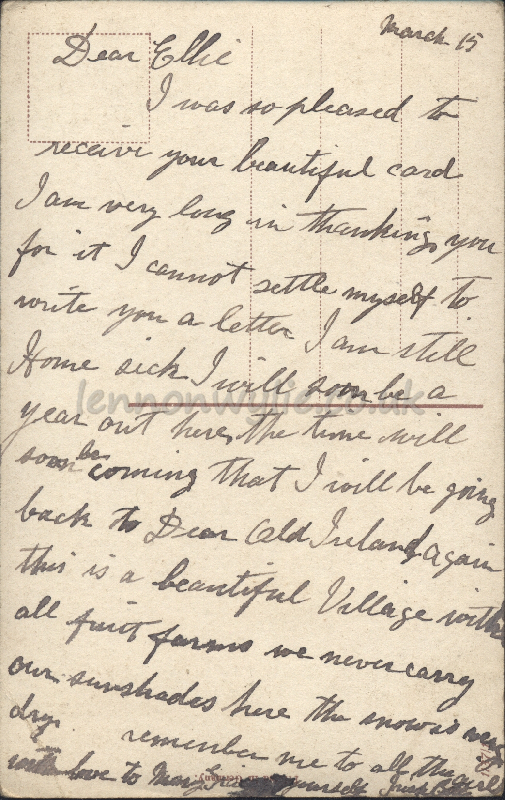 March 15
Dear Ellie
I was so pleased to
receive your beautiful card
I am very long in thanking you
for it I cannot settle myself to
write you a letter I am still
Home sick I will soon be a
lennonwylie.co.uk
year out here, the time will
soon be coming that I will be going
back to Dear Old Ireland again
this is a beautiful Village with
all fruit farms we never carry
our sunshades here the snow is very
dry remember me to all the girls
with love to May yourself